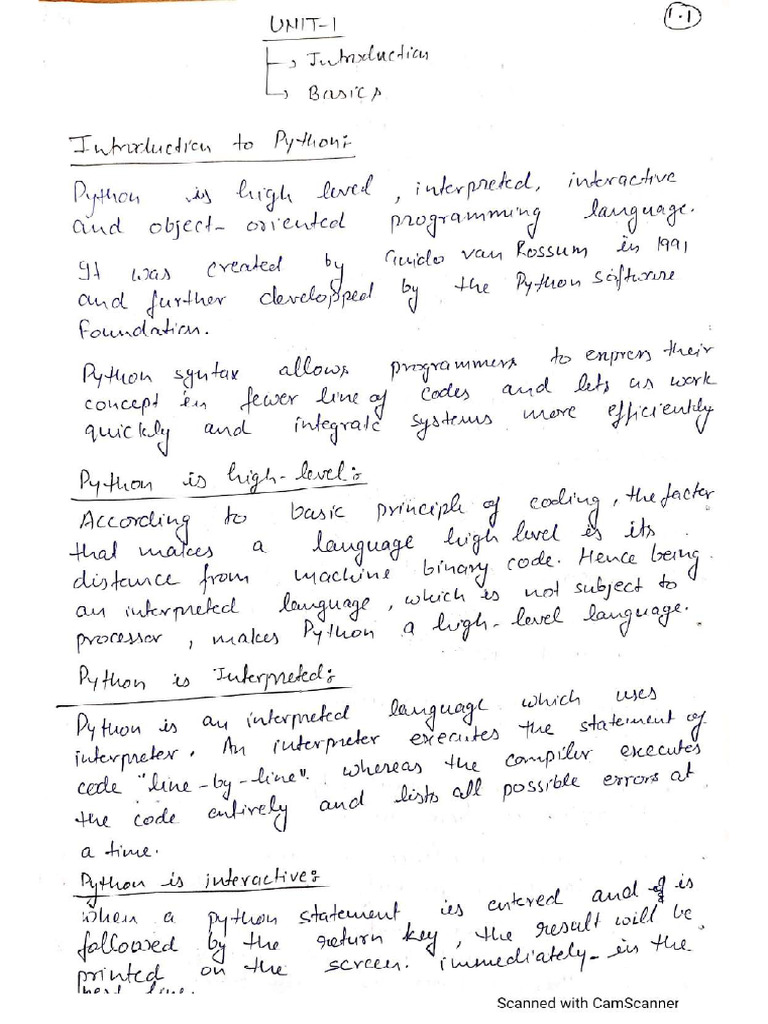 1.1
UNIT-1
Introduction
Basics
Introduction to Python:
Python is high level, interpreted, interactive
and object-oriented programming language.
It was created by Guido van Rossum in 1991
and further developped by the Python Software
Foundation.
Python syntax allows programmers to express their
concept in fewer line of codes and lets us work
quickly and integrate systems more efficiently
Python is high-level:
According to basic principle of coding, the factor
that makes a language high level is its
distance from machine binary code. Hence being
an interpreted language, which is not subject to
processor, makes Python a high-level language.
Python is Interpreted:
Python is an interpreted language which uses
interpreter. An interpreter executes the statement of
code "line-by-line". whereas the compiler executes
the code entirely and lists all possible errors at
a time.
Python is interactive:
When a python statement is entered and is
followed by the return key, the result will be
printed on the screen. immediately- in the
next line.
Scanned with CamScanner